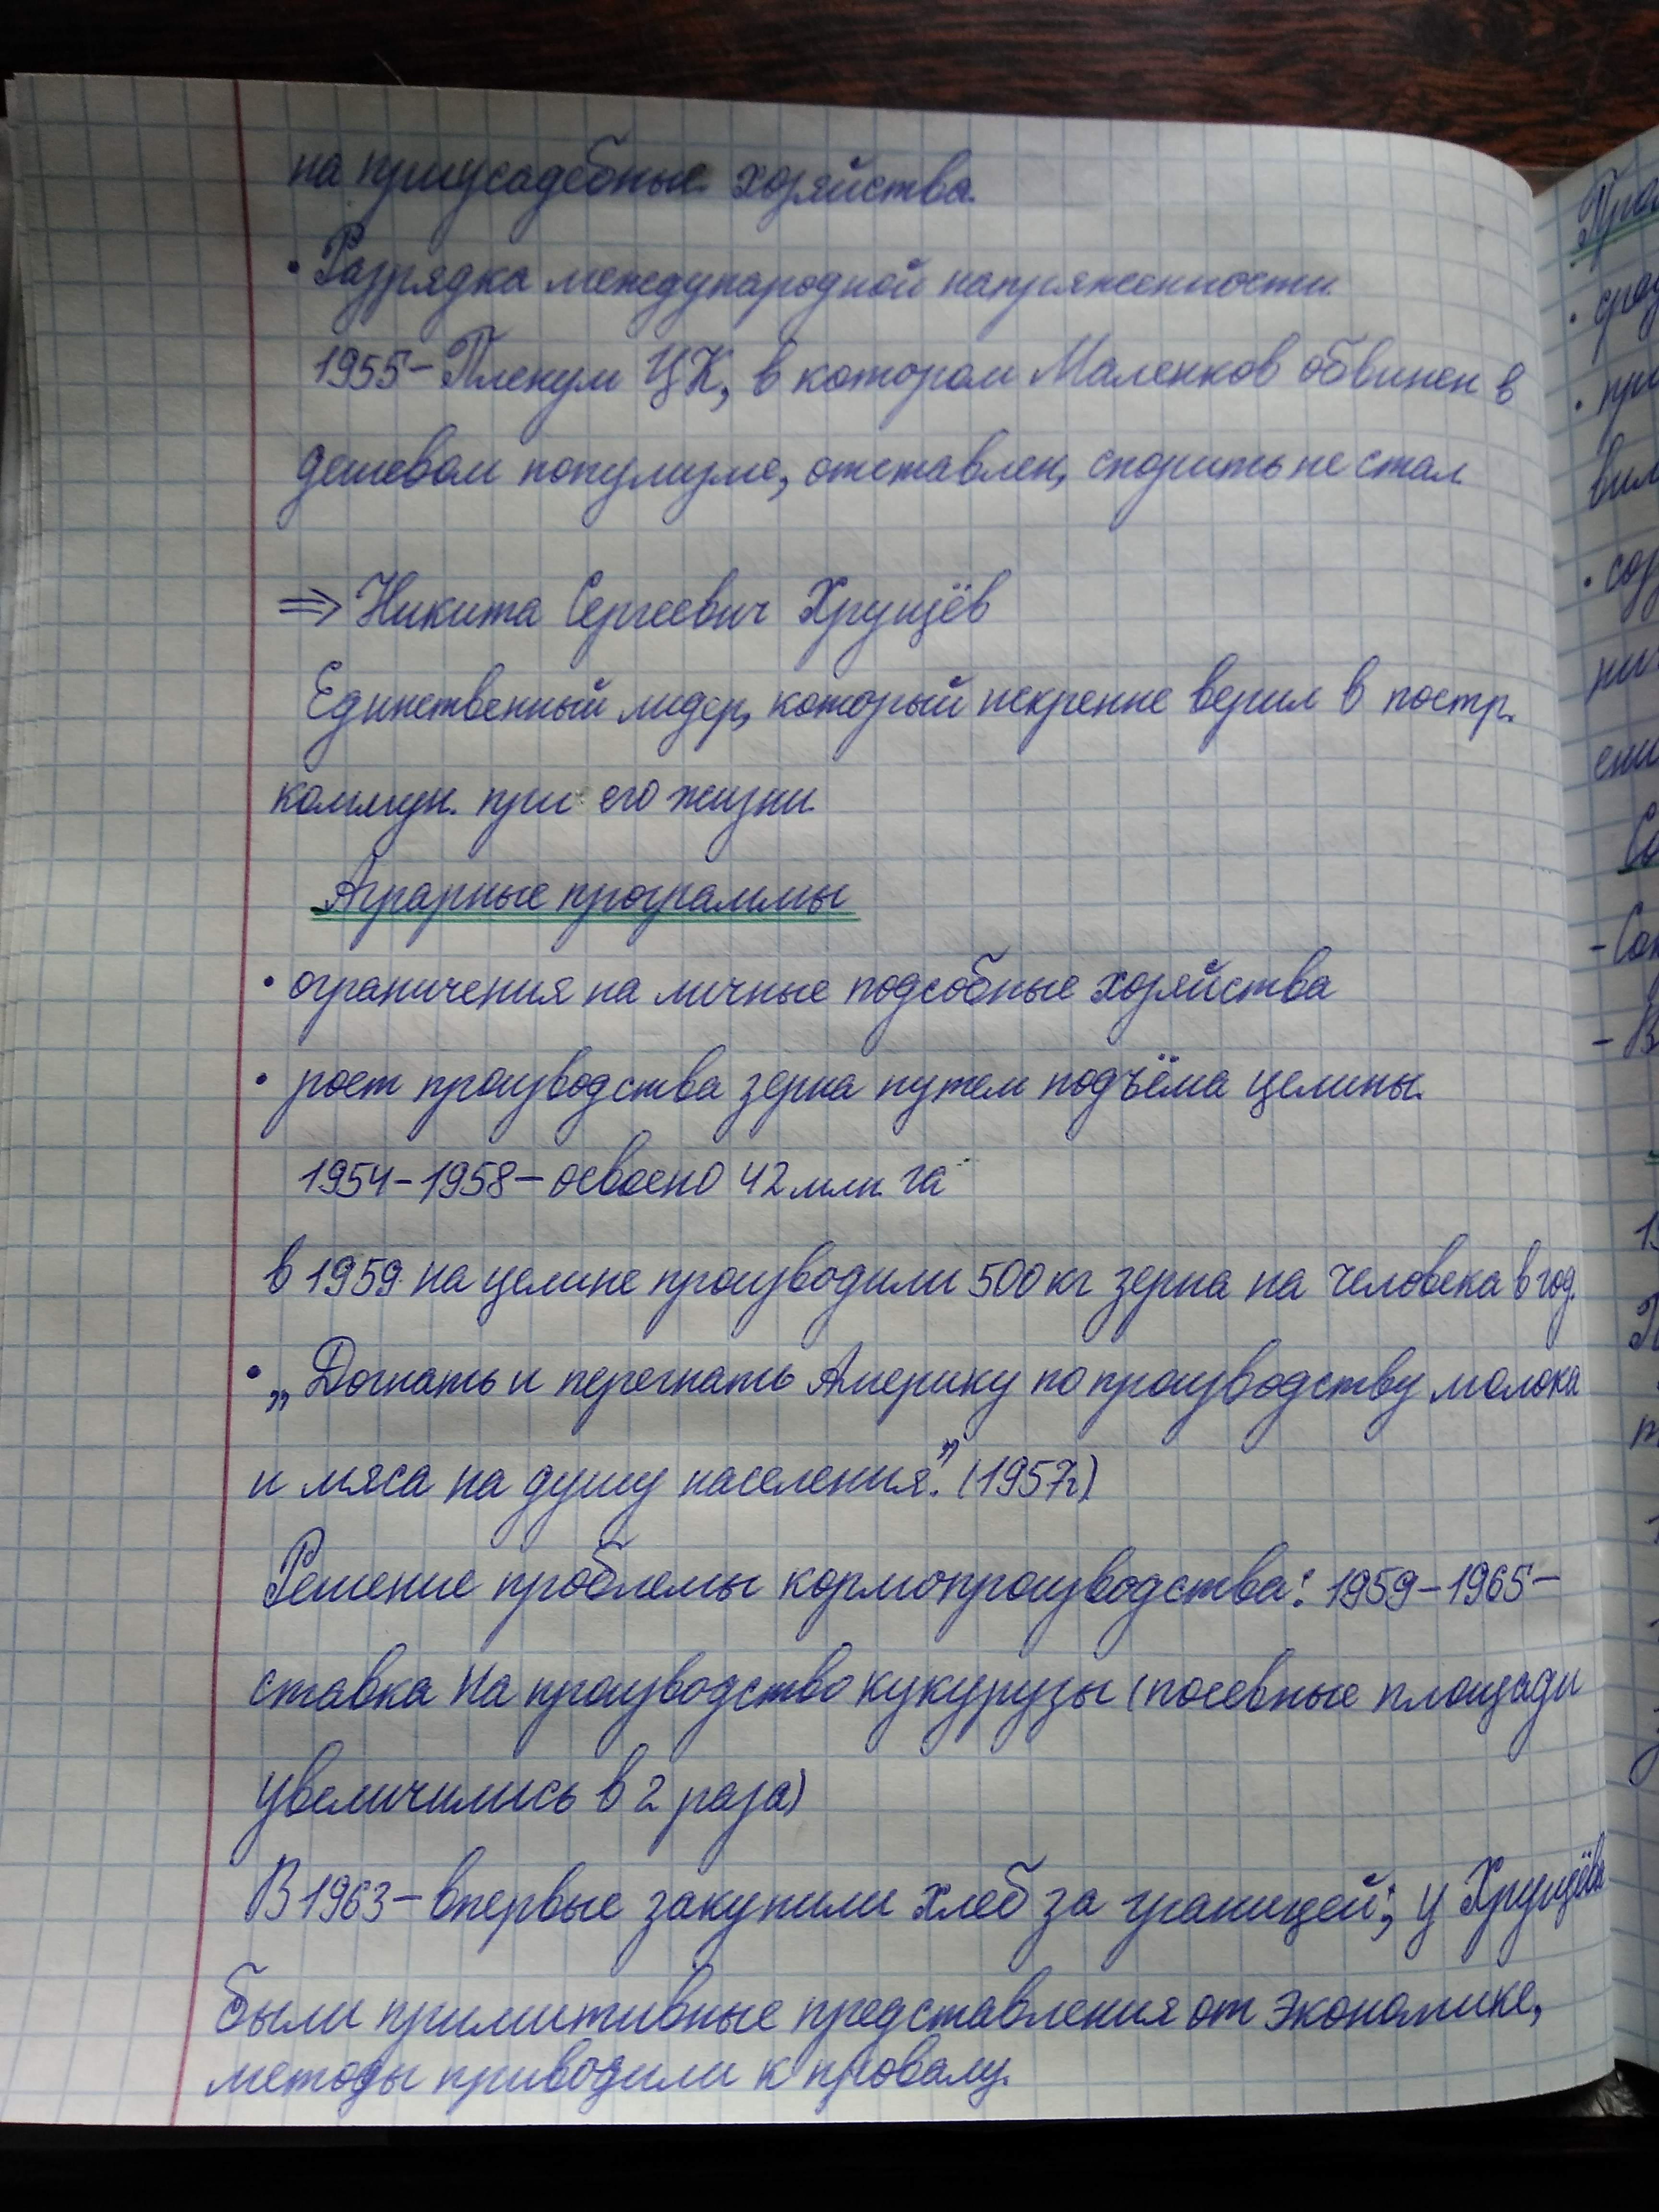 на приусадебные хозяйства.
• Разрядка международной напряженности.
1955 – Пленум ЦК, в котором Маленков обвинен в
дешевом популизме, отставлен, спорить не стал
⇒ Никита Сергеевич Хрущёв
Единственный лидер, который искренне верил в постр.
коммун. при его жизни.
Аграрные программы
• ограничения на личные подсобные хозяйства
• рост производства зерна путем подъёма целины.
1954 – 1958 – освоено 42 млн. га
в 1959 на целине производили 500 кг зерна на человека в год.
• „Догнать и перегнать Америку по производству молока
и мяса на душу населения.” (1957г)
Решение проблемы кормопроизводства: 1959 – 1965 –
ставка на производство кукурузы (посевные площади
увеличились в 2 раза)
В 1963 – впервые закупили хлеб за границей; у Хрущёва
были примитивные представления от экономике,
методы приводили к провалу.